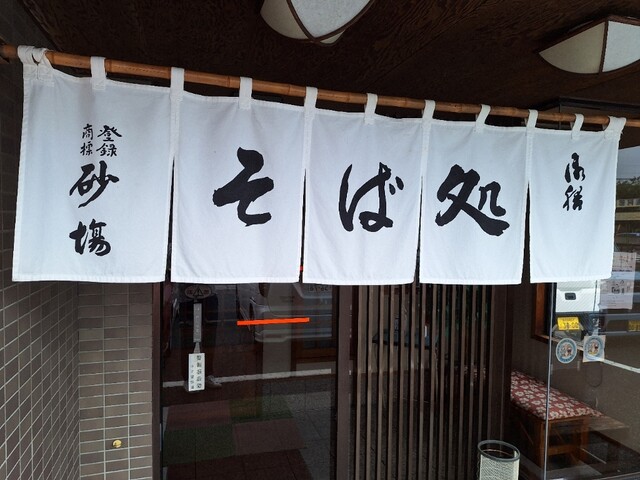 登録
商標
砂場
そば処
御膳